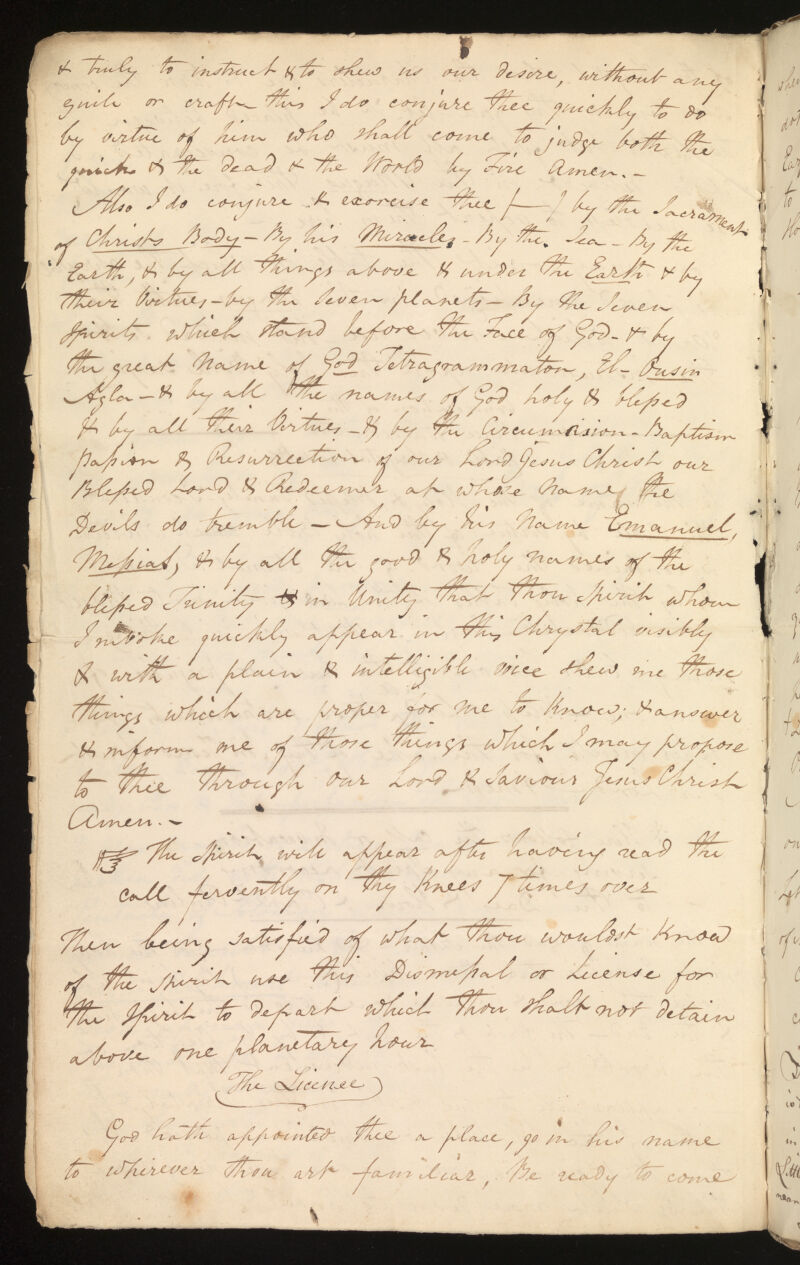 & truly to instruct & to shew us our desire, without any
guile or craft - this I do conjure thee quickly to do
by virtue of him who shall come to judge both the
quick & the dead & the World by Fire Amen. -
Also I do conjure & exorcise thee ( - ) by the Sacrament
of Christs Body - By his Miracles - By the Sea - By the
Earth, & by all things above & under the Earth & by
their Virtues - by the Seven planets - By the Seven
Spirits which stand before the Face of God - & by
the great Name of God Tetragrammaton, El - Ousin
Agla - & by all the names of God holy & blessed
& by all their Virtues - & by the Circumcision - Baptism
Passion & Resurrection of our Lord Jesus Christ our
Blessed Lord & Redeemer at whose Name the
Devils do tremble - And by his Name Emanuel,
Messias, & by all the good & holy names of the
blessed Trinity in Unity that thou Spirit whom
I invoke quickly appear in this Chrystal visibly
& with a plain & intelligible voice shew me those
things which are proper for me to know; & answer
& inform me of those things which I may propose
to thee through our Lord & Saviour Jesus Christ
Amen. -
The Spirit will appear after having read the
call fervently on thy Knees 7 times over
Then being satisfied of what thou wouldst Know
of the Spirit use this Dismissal or License for
the Spirit to depart which thou shalt not detain
above one planetary hour
The Licence
God hath appointed thee a place, go in his name
to wherever thou art familiar, Be ready to come